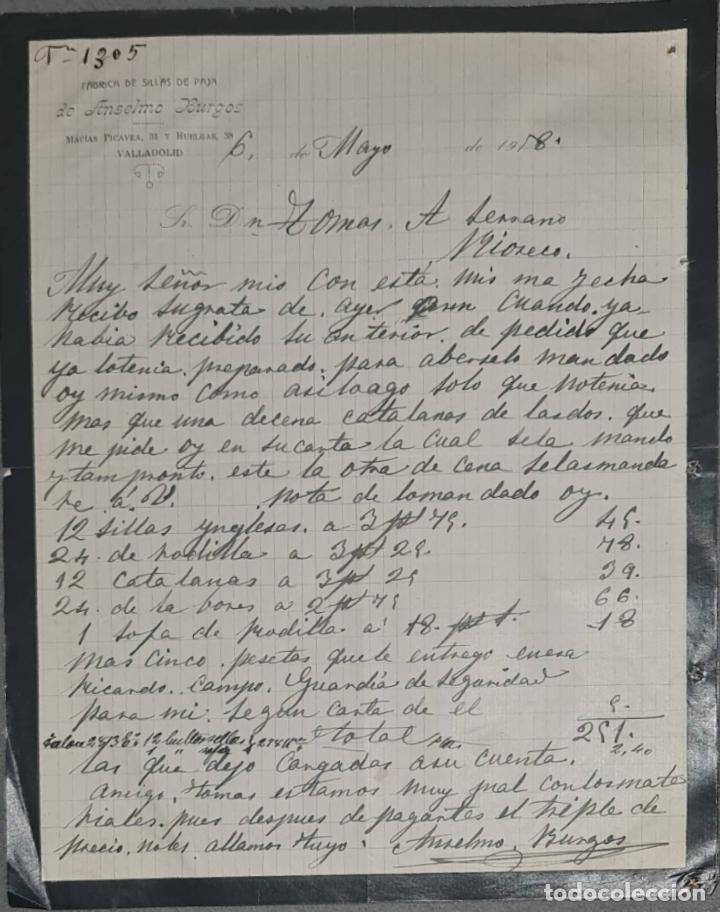 Tn 1305
FÁBRICA DE SILLAS DE PAJA
de Anselmo Burgos
MACIAS PICAVEA, 31 Y HUELGAS, 38
VALLADOLID
6, de Mayo de 1918.
Sr. Dn Tomas. A Serrano
Rioseco.
Muy Señor mio con está mis ma fecha
Recibo sugrata de ayer cuando ya
habia Recibido su anterior de pedido que
ya lotenia preparado para aberselo mandado
oy mismo como asiloago solo que notenia
mas que una decena catalanas de lasdos. que
me pide oy en sucarta la cual sela mando
y tampronto este la otra de cena selasmanda
re á V. nota de lomandado oy.
12 sillas ynglesas a 3 pt 75. 45.
24 de Rodilla a 3 pt 25. 78.
12 catalanas a 3 pt 25 39.
24 de la bores a 2 pt 75 66.
1 sofa de Rodilla a 18 pt 18
mas cinco pesetas que le entrego enesa
Ricardo Campo. Guardia de seguridad
para mi segun carta de el 5.
talon 28736 12 bultos sillas total 251.
2,40
las que dejo cargadas asu cuenta.
amigo, tomas estamos muy mal conlosmate
riales. pues despues de pagarles el triple de
precio, noles allamos tuyo. Anselmo Burgos
todocoleccion.net